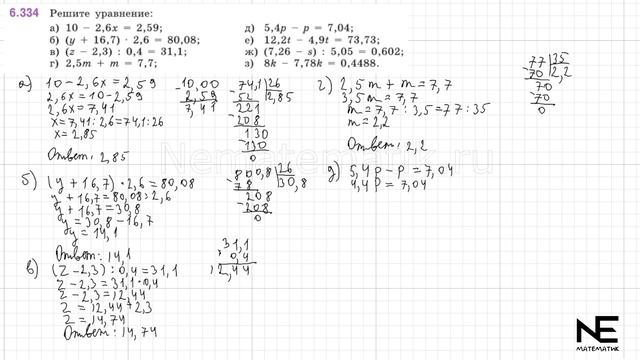 6.334 Решите уравнение:
а) 10 − 2,6x = 2,59;
б) (y + 16,7) · 2,6 = 80,08;
в) (z − 2,3) : 0,4 = 31,1;
г) 2,5m + m = 7,7;
д) 5,4p − p = 7,04;
е) 12,2t − 4,9t = 73,73;
ж) (7,26 − s) : 5,05 = 0,602;
з) 8k − 7,78k = 0,4488.
а) 10 − 2,6x = 2,59
2,6x = 10 − 2,59
2,6x = 7,41
x = 7,41 : 2,6 = 74,1 : 26
x = 2,85
Ответ: 2,85
− 10,00
2,59
7,41
− 74,1 26
52 2,85
− 221
208
− 130
130
0
б) (y + 16,7) · 2,6 = 80,08
y + 16,7 = 80,08 : 2,6
y + 16,7 = 30,8
y = 30,8 − 16,7
y = 14,1
Ответ: 14,1
− 800,8 26
78 30,8
− 208
208
0
в) (z − 2,3) : 0,4 = 31,1
z − 2,3 = 31,1 · 0,4
z − 2,3 = 12,44
z = 12,44 + 2,3
z = 14,74
Ответ: 14,74
31,1
0,4
12,44
г) 2,5m + m = 7,7
3,5m = 7,7
m = 7,7 : 3,5 = 77 : 35
m = 2,2
Ответ: 2,2
− 77 35
70 2,2
− 70
70
0
д) 5,4p − p = 7,04
4,4p = 7,04
NE
МАТЕМАТИК